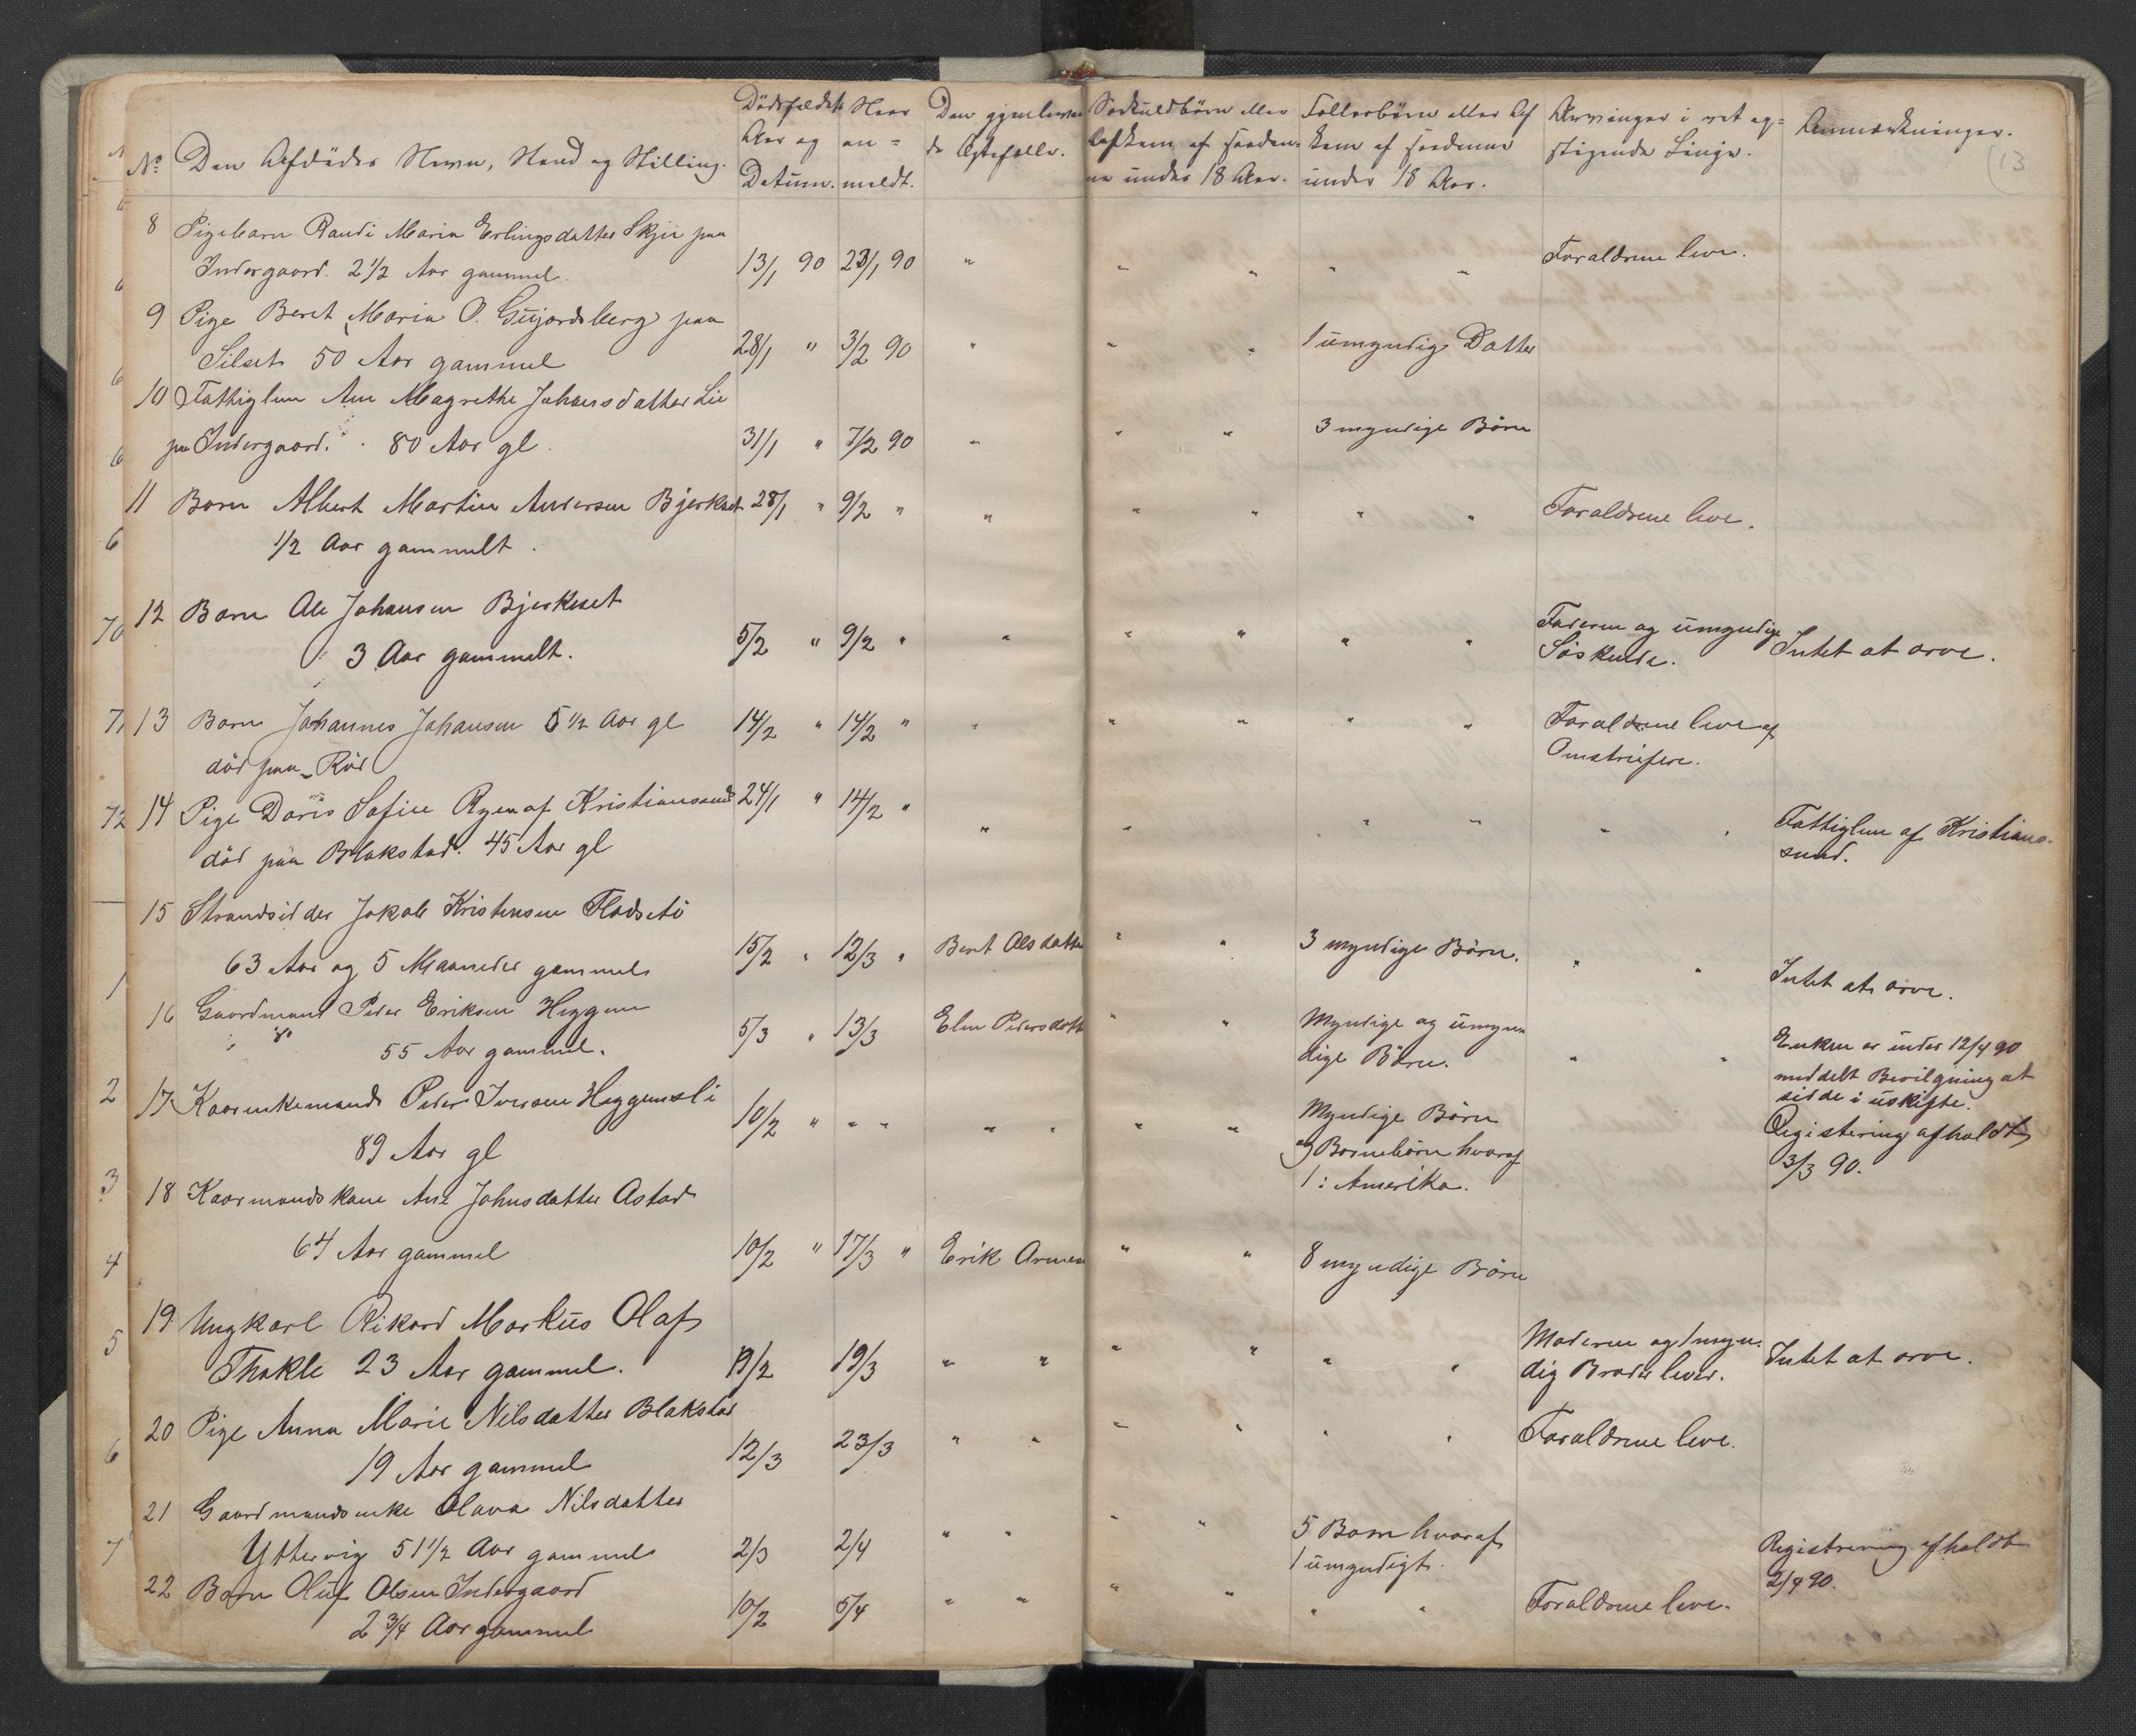 No. Den Afdödes Navn, Stand og Stilling. Dödsfaldets Aar og Datum. Naar anmeldt. Den gjenlevende Ægtefælle. Særkuldbörn eller Afkom af saadanne under 18 Aar. Fællesbörn eller Afkom af saadanne under 18 Aar. Arvinger i ret opstigende Linje. Anmærkninger.
13
8 Pigebarn Randi Maria Erlingsdatter Skjei paa
Indergaard. 2 1/2 Aar gammel. 13/1 90 23/1 90 " " " " " Forældrene leve.
9 Pige Beret Maria O. Gujordsberg paa
Silset 50 Aar gammel 28/1 " 3/2 90 " " " 1 umyndig Datter
10 Fattiglem Ane Magrethe Johansdatter Lie
paa Indergaard. 80 Aar gl. 31/1 " 7/2 90 " " " 3 myndige Börn
11 Barn Albert Martin Andersen Bjerkset 28/1 " 9/2 " " " " " " Forældrene leve.
1/2 Aar gammelt.
12 Barn Ole Johansen Bjerkeset
3 Aar gammelt. 5/2 " 9/2 " " " " " " Faderen og umyndige
Söskende. Intet at arve.
13 Barn Johannes Johansen 5 1/2 Aar gl 14/2 " 14/2 " " " " " " Forældrene leve af
död paa Röd Omstreifere.
14 Pige Doris Sofie Ryen af Kristianssund 24/1 " 14/2 " " " " " " "
död paa Blakstad. 45 Aar gl Fattiglem af Kristians-
sund.
15 Strandsidder Jakob Kristensen Flodsetö
63 Aar og 5 Maaneder gammel 15/2 " 12/3 " Berit Olsdatter " " 3 myndige Börn. " " Intet at arve.
16 Gaardmand Peder Eriksen Heggem
55 Aar gammel. 5/3 " 13/3 Elen Pedersdatt " " Myndige og umyn
dige Börn. " " Enken er under 12/4 90
meddelt Bevilgning at
sidde i uskifte.
17 Kaarenkemand Peder Iversen Heggemsli
89 Aar gl 10/2 " " " " " " " Myndige Börn
og Barnebörn hvoraf
1 i Amerika. Registering afholdt
3/3 90.
18 Kaarmandskone Ane Johnsdatter Astad
64 Aar gammel 10/2 " 17/3 " Erik Arnesen " " 8 myndige Börn
19 Ungkarl Rikard Markus Olaf
Thokle 23 Aar gammel. 19/2 19/3 " " " " " " Moderen og 1 myn-
dig Broder lever. Intet at arve.
20 Pige Anna Marie Nilsdatter Blakstad
19 Aar gammel 12/3 23/3 " " " " " " Forældrene leve.
21 Gaardmandsenke Olava Nilsdatter
Yttervig 51 1/2 Aar gammel 2/3 2/4 " " " " 5 Barn hvoraf
1 umyndigt. Registrering afholdt
2/4 90.
22 Barn Oluf Olsen Indergaard
2 3/4 Aar gammel 10/2 5/4 " " " " " " Forældrene leve.